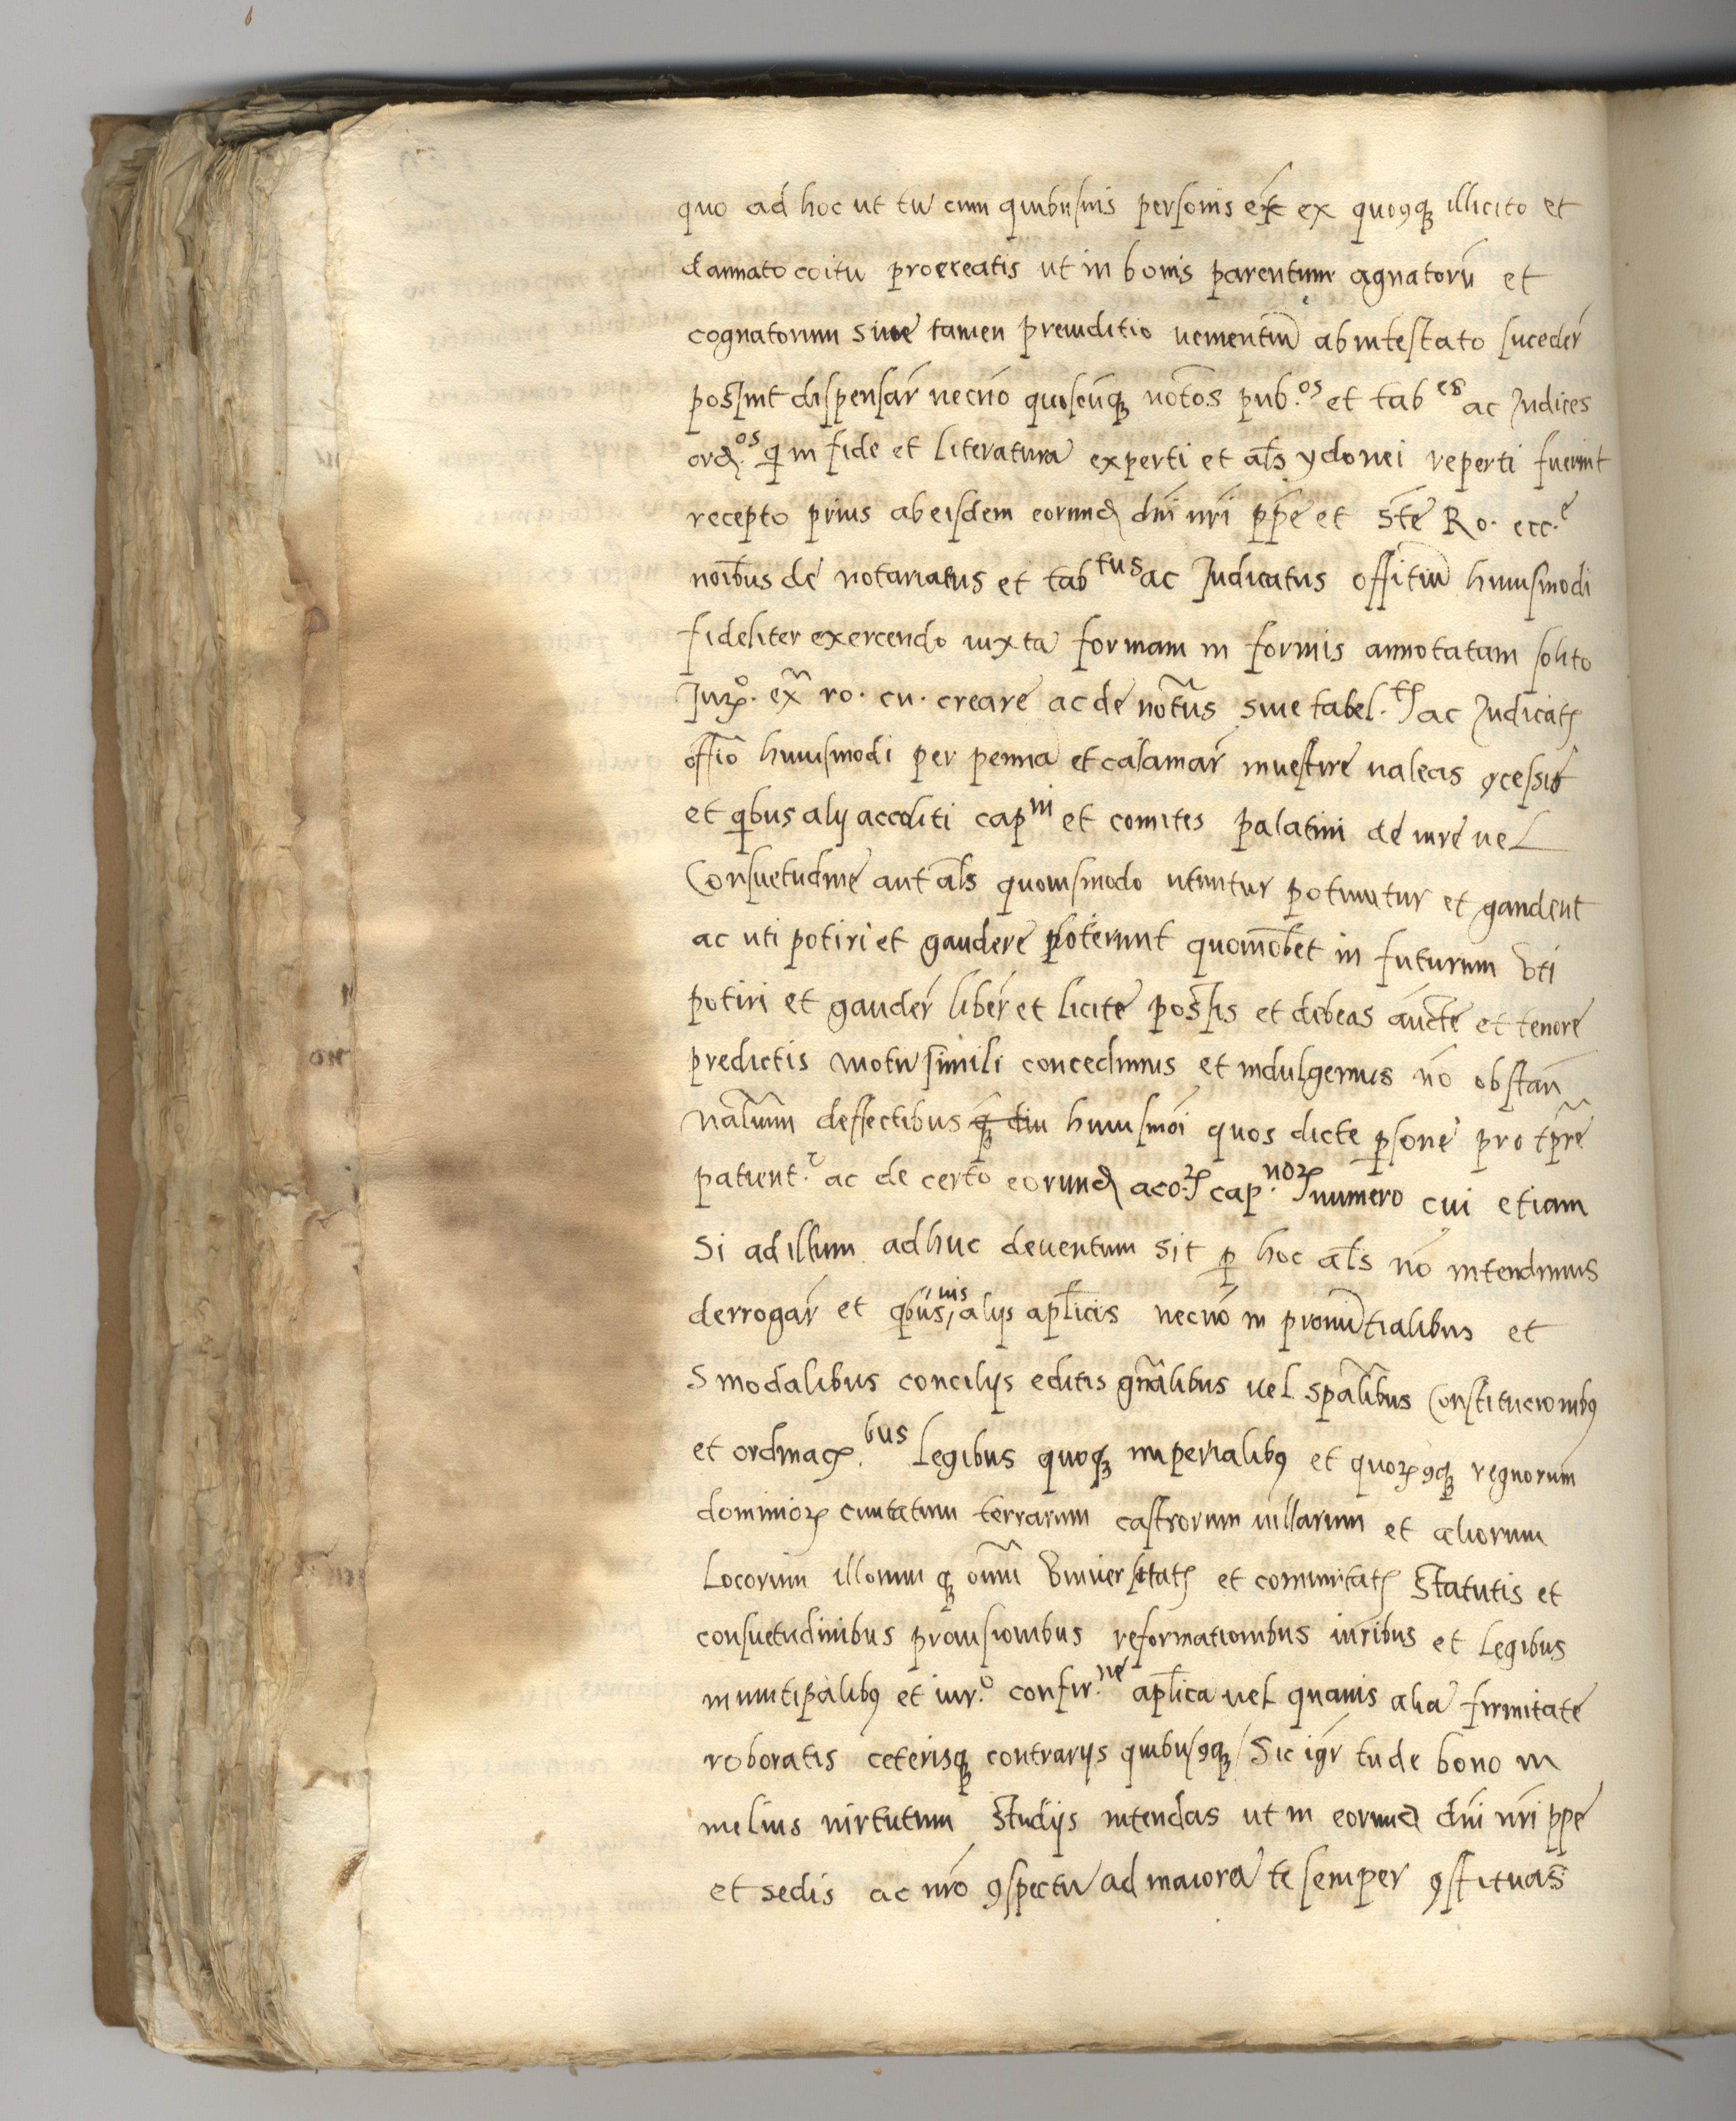 quo ad hoc ut tu cum quibusuis personis et̃ ex quoꝯqꝫ illicito et
dannato coitu procreatis ut in bonis parentum agnatorū et
cognatorum sine tamen preiuditio uenientiū ab intestato suceder̃
possint dispensar̃ necnõ quoscũqꝫ notos pub.os et tab es ac Judices
ord.os qͥ in fide et literatura experti et al̃s ydonei reperti fuerint
recepto prius ab eisdem eorund dñi nr̃i pp̃e et S.te Ro. ecc.e
noĩbus de notariatus et tab tus ac Judicatus offitiū huiusmodi
fideliter exercendo iuxta formam in formis annotatam solito
Jurꝭ.o ex̃ ro. cu. creare ac de not̃us siue tabel.tꝭ ac Judicatꝭ
offio huiusmodi per penna et calamar̃ inuestire ualeas ꝯcessis
et qͥbus alij accoliti cap ni et comites palatini de iure uel
Consuetudine aut al̃s quouismodo utuntur potiuntur et gaudent
ac uti potiri et gaudere poterunt quomõl̃bet in futurum Vti
potiri et gauder̃ liber̃ et licite possis et debeas auct̃e et tenore
predictis motu simili concedimus et indulgemus nõ obstañ
Nal̃ium deffectibus qꝫ diu huiusmõi quos dicte ꝑsone pro tp̃re
patient.r ac de certo eorund aco.ꝝ cap.noꝝ numero cui etiam
Si ad illum adhuc deuentum sit ꝑ hoc al̃s nõ intendimus
derrogar̃ et qͥbusuis alijs apl̃icis necnõ in prouintialibus et
Sinodalibus concilijs editis gñalibus uel sp̃alibus Constitucionibꝯ
et ordinacꝭ.bus Legibus quoqꝫ imperialibꝯ et quoꝝꝯqꝫ regnorum
dominioꝝ ciuitatum terrarum castrorum uillarum et aliorum
Locorum illorum qꝫ oñiu Vniuersitatꝭ et comunitatꝭ Statutis et
consuetudinibus prouisionibus reformationibus iuribus et Legibus
municipalibꝯ et iur.o confir.ne apl̃ica uel quauis alia firmitate
roboratis ceterisqꝫ contrarijs quibusꝯqꝫ / Sic igr̃ tu de bono in
melius uirtutum Studijs intendas ut in eorund dñi nr̃i pp̃e
et sedis ac nr̃o ꝯspectu ad maiora te semper ꝯstituas